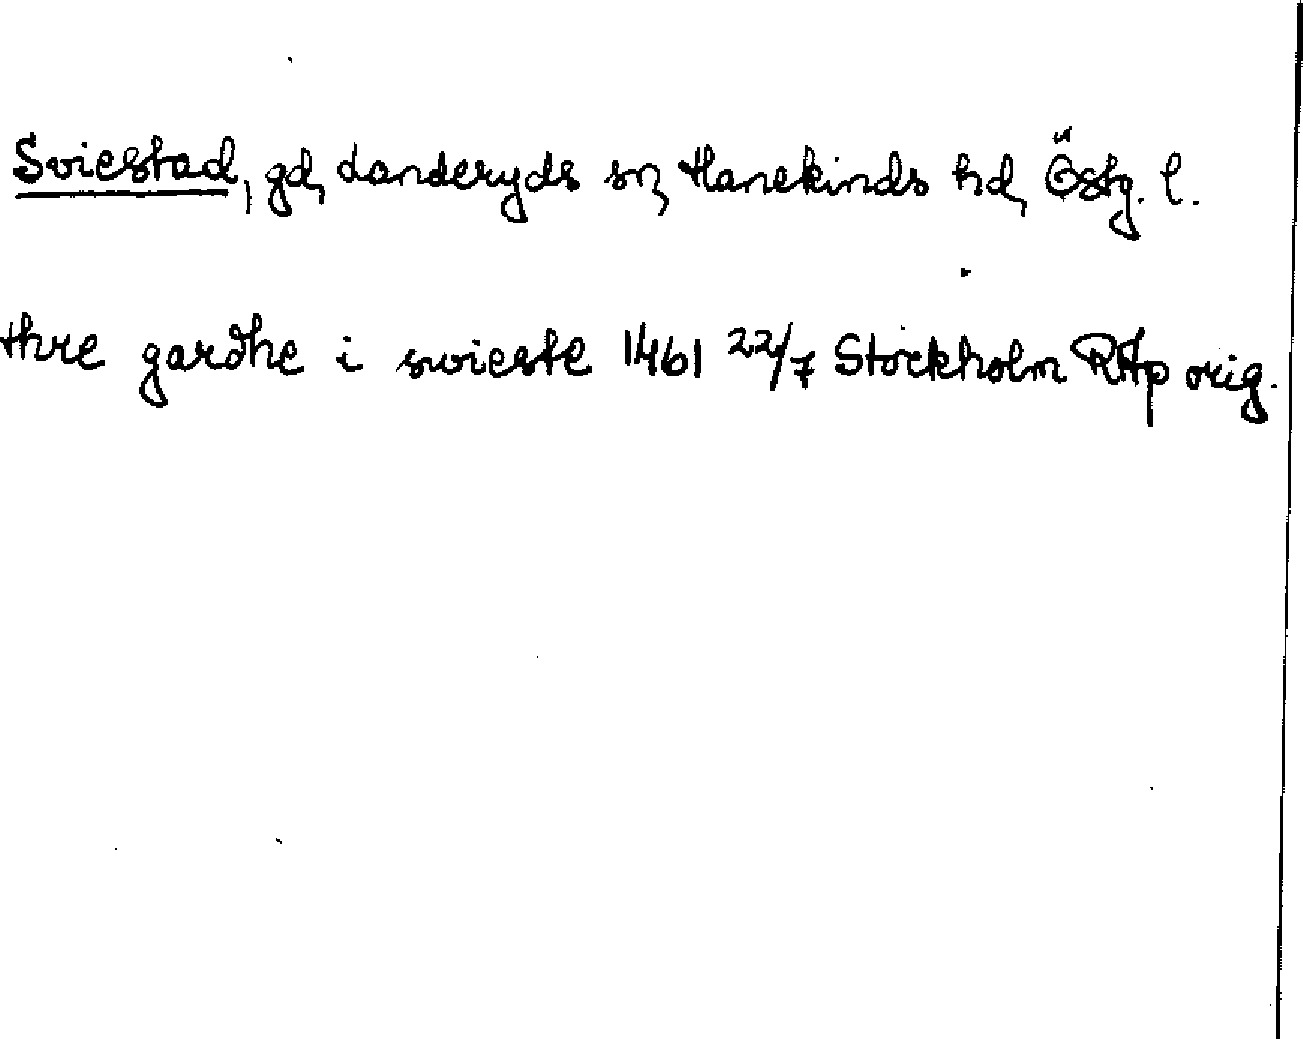 Sviestad, gd, Landeryds sn, Hanekinds hd, Östg. l.
thre gardhe i swieste 1461 22/7 Stockholm RAp orig.